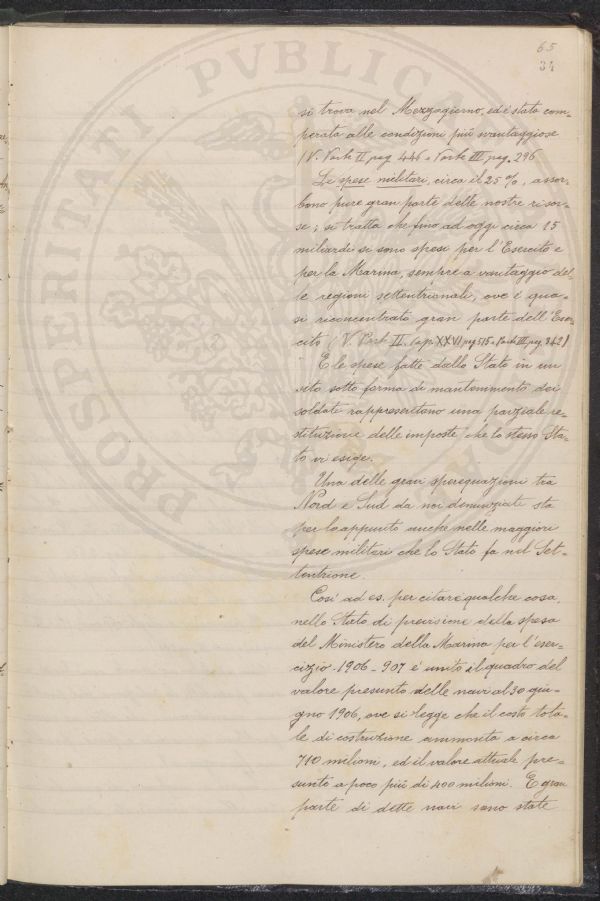 65
34
PROSPERITATI PVBLICAE
si trova nel Mezzogiorno, ed è stata com-
perata alle condizioni più svantaggiose
(V. Parte II, pag. 446 e Parte III, pag. 296
Le spese militari, circa il 25%, assor-
bono pure gran parte delle nostre risor-
se; si tratta che fino ad oggi circa 15
miliardi si sono spesi per l'Esercito e
per la Marina, sempre a vantaggio del-
le regioni settentrionali, ove è qua-
si riconcentrato gran parte dell'Eser-
cito (V. Parte II. Cap. XXVI pag 515 e Parte III pag. 342)
E le spese fatte dallo Stato in un
sito sotto forma di mantenimento dei
soldati rappresentano una parziale re-
stituzione delle imposte, che lo stesso Sta-
to vi esige.
Una delle gravi sperequazioni tra
Nord e Sud da noi denunziate sta
per lo appunto anche nelle maggiori
spese militari che lo Stato fa nel Set-
tentrione.
Così ad es. per citare qualche cosa,
nello Stato di previsione della spesa
del Ministero della Marina per l'eser-
cizio 1906-907 è unito il quadro del
valore presunto delle navi al 30 giu-
gno 1906, ove si legge che il costo tota-
le di costruzione ammonta a circa
710 milioni, ed il valore attuale pre-
sunto a poco più di 400 milioni. E gran
parte di dette navi sono state